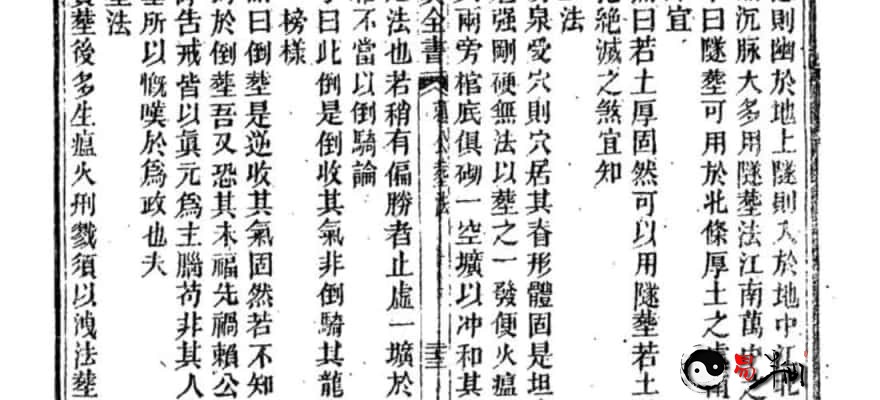 則幽於地上隧則入於地中江北
沉脉大多用隧塟法江南萬山之
曰隧塟可用於北條厚土之處
宜
曰若土厚固然可以用隧塟若土
絶滅之煞宜知
法
泉受穴則穴居其脊形體固是坦
强剛硬無法以塟之一發便火瘟
兩旁棺底俱砌一空壙以冲和其
全書
三
法也若稍有偏勝者止虛一壙於
不當以倒騎論
曰此倒是倒收其氣非倒騎其龍
榜樣
曰倒塟是逆收其氣固然若不知
於倒塟吾又恐其未福先禍賴公
告戒皆以眞元爲主腦苟非其人
所以慨嘆於爲政也夫
法
塟後多生瘟火刑戮須以洩法塟
易